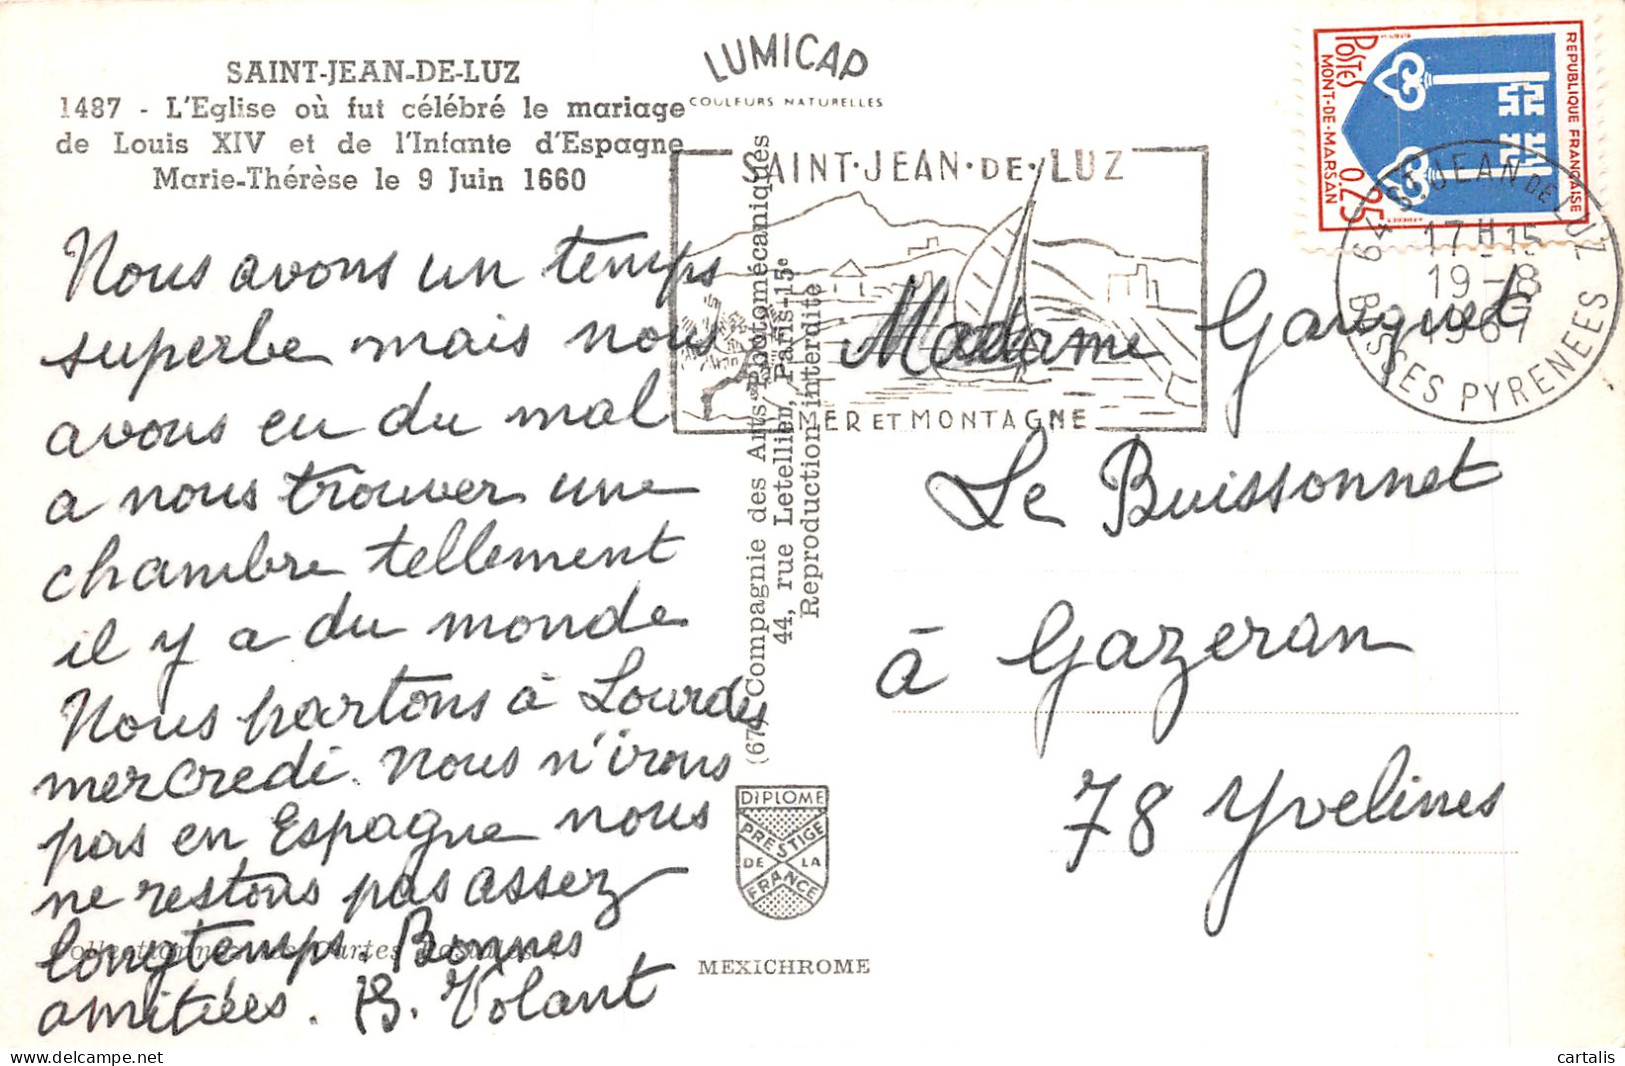 SAINT-JEAN-DE-LUZ
1487 - L'Eglise où fut célébré le mariage
de Louis XIV et de l'Infante d'Espagne
Marie-Thérèse le 9 Juin 1660
Nous avons un temps
superbe mais nous
avons eu du mal
a nous trouver une
chambre tellement
il y a du monde
Nous partons à Lourdes
mercredi. Nous n'irons
pas en Espagne nous
ne restons pas assez
longtemps. Bonnes
amitiées. B. Volant
LUMICAP
COULEURS NATURELLES
SAINT·JEAN·DE·LUZ
MER ET MONTAGNE
Compagnie des Arts Photomécaniques
44, rue Letellier, Paris-15e
Reproduction interdite
DIPLOME
PRESTIGE
DE LA
FRANCE
MEXICHROME
REPUBLIQUE FRANÇAISE
POSTES
MONT-DE-MARSAN
0.25
64 ST JEAN DE LUZ
17H15
19-8
1967
BASSES PYRENEES
Madame Gauquet
Le Buissonnet
à Gazeran
78 Yvelines
cartalis